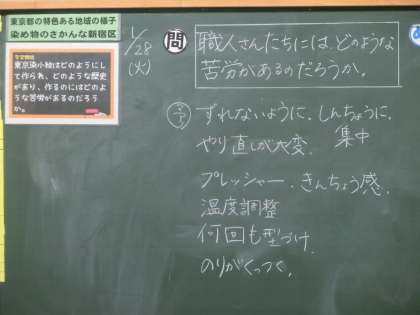 東京都の特色ある地域の様子
染め物のさかんな新宿区
東京染小紋はどのようにし
て作られ、どのような歴史
があり、作るのにはどのよ
うな苦労があるのだろう
か。
1/28
(火)
問
職人さんたちには、どのような
苦労があるのだろうか。
予
ずれないように、しんちょうに。
やり直しが大変。 集中
プレッシャー・きんちょう感
温度調整
何回も型づけ
のりがくっつく。